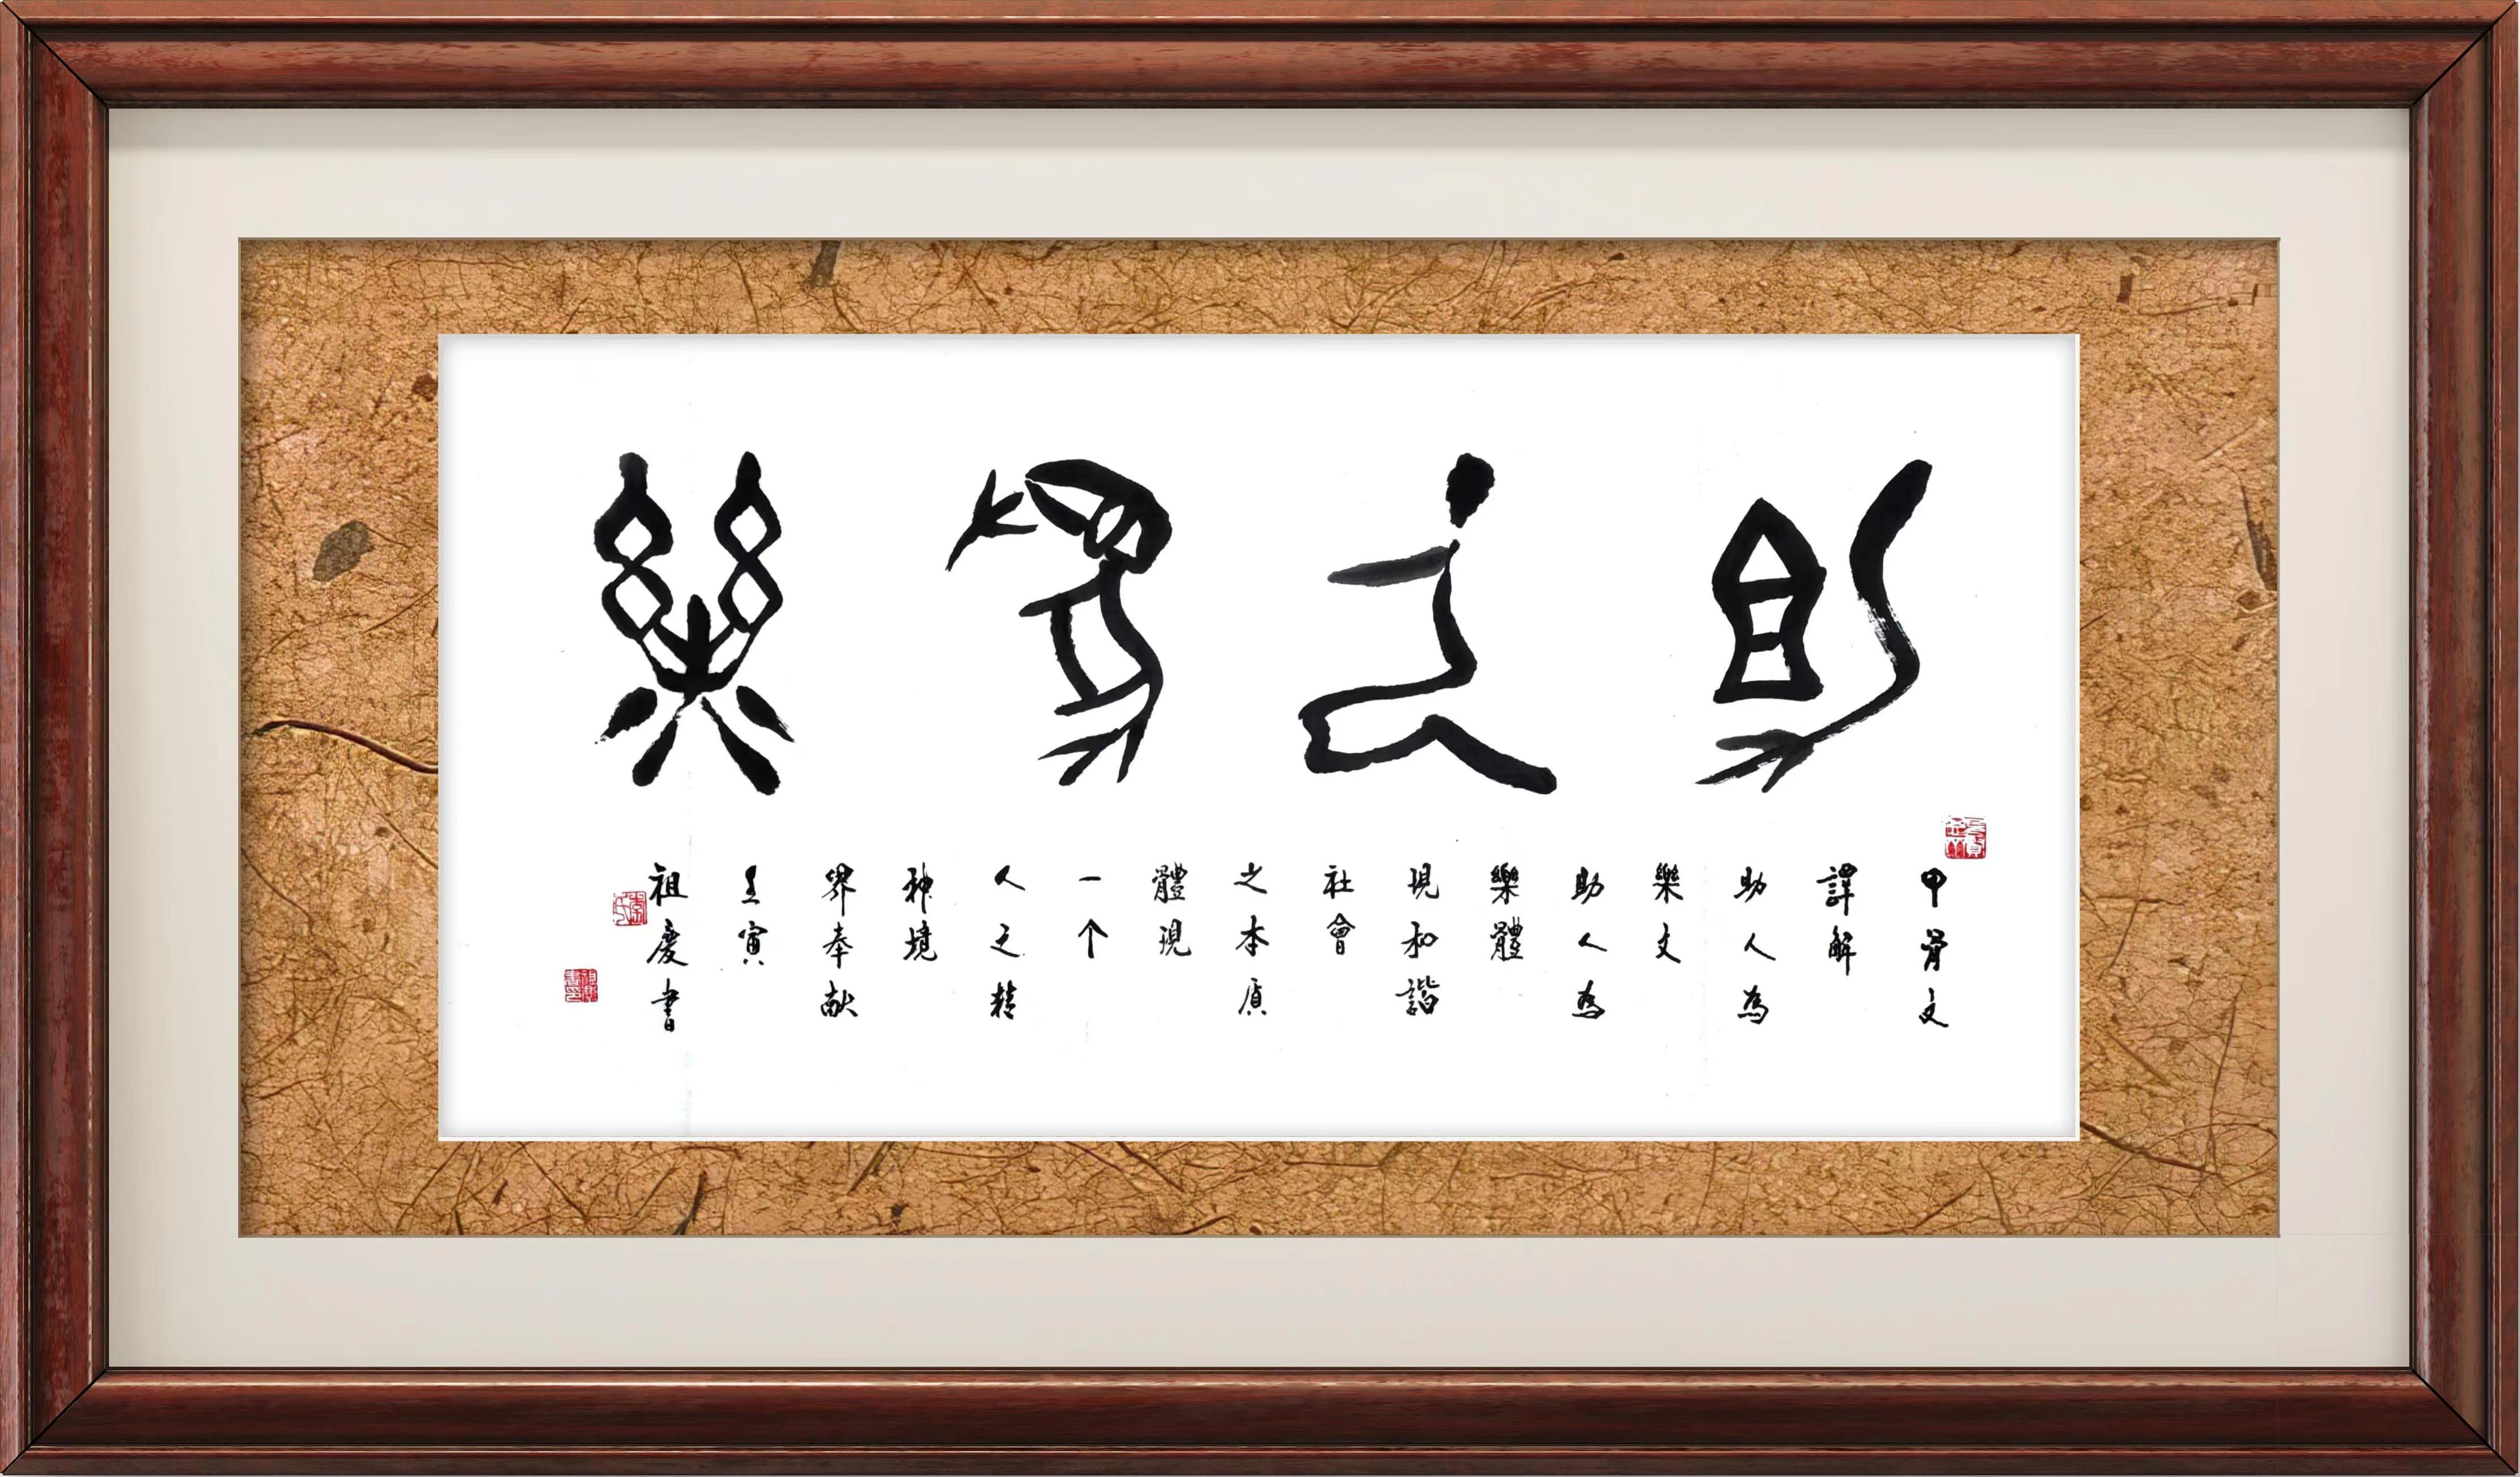 助人為樂
甲骨文
譯解
助人為
樂文
助人為
樂體
現和諧
社會
之本質
體現
一个
人之精
神境
界奉献
壬寅
祖慶書